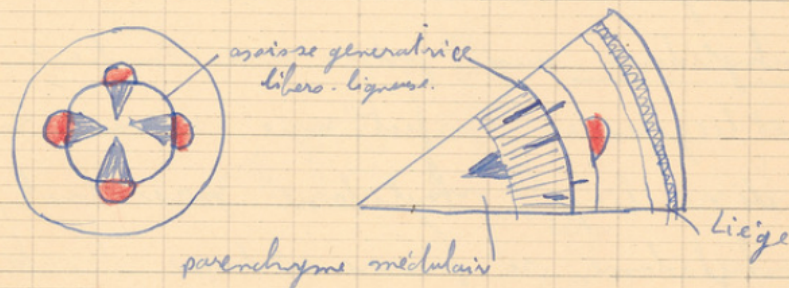 assise generatrice
libero-ligneuse.
Liège
parenchyme médulair